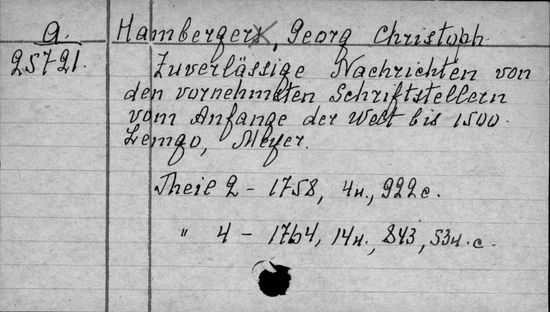 a. Hamberger, Georg Christoph
25721. Zuverlässige Nachrichten von
den vornehmsten Schriftstellern
vom Anfange der Welt bis 1500.
Lemgo, Meyer.
Theil 2 - 1758, 4н., 922 с.
" 4 - 1764, 14н., 843, 53н. с.